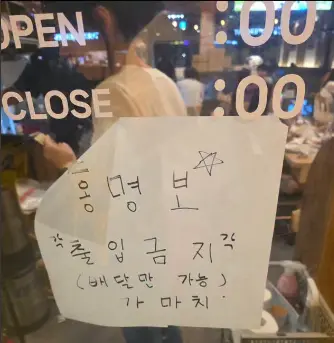 OPEN :00
CLOSE :00
홍명보☆
각 출입금지 각
(배달만 가능)
가마치